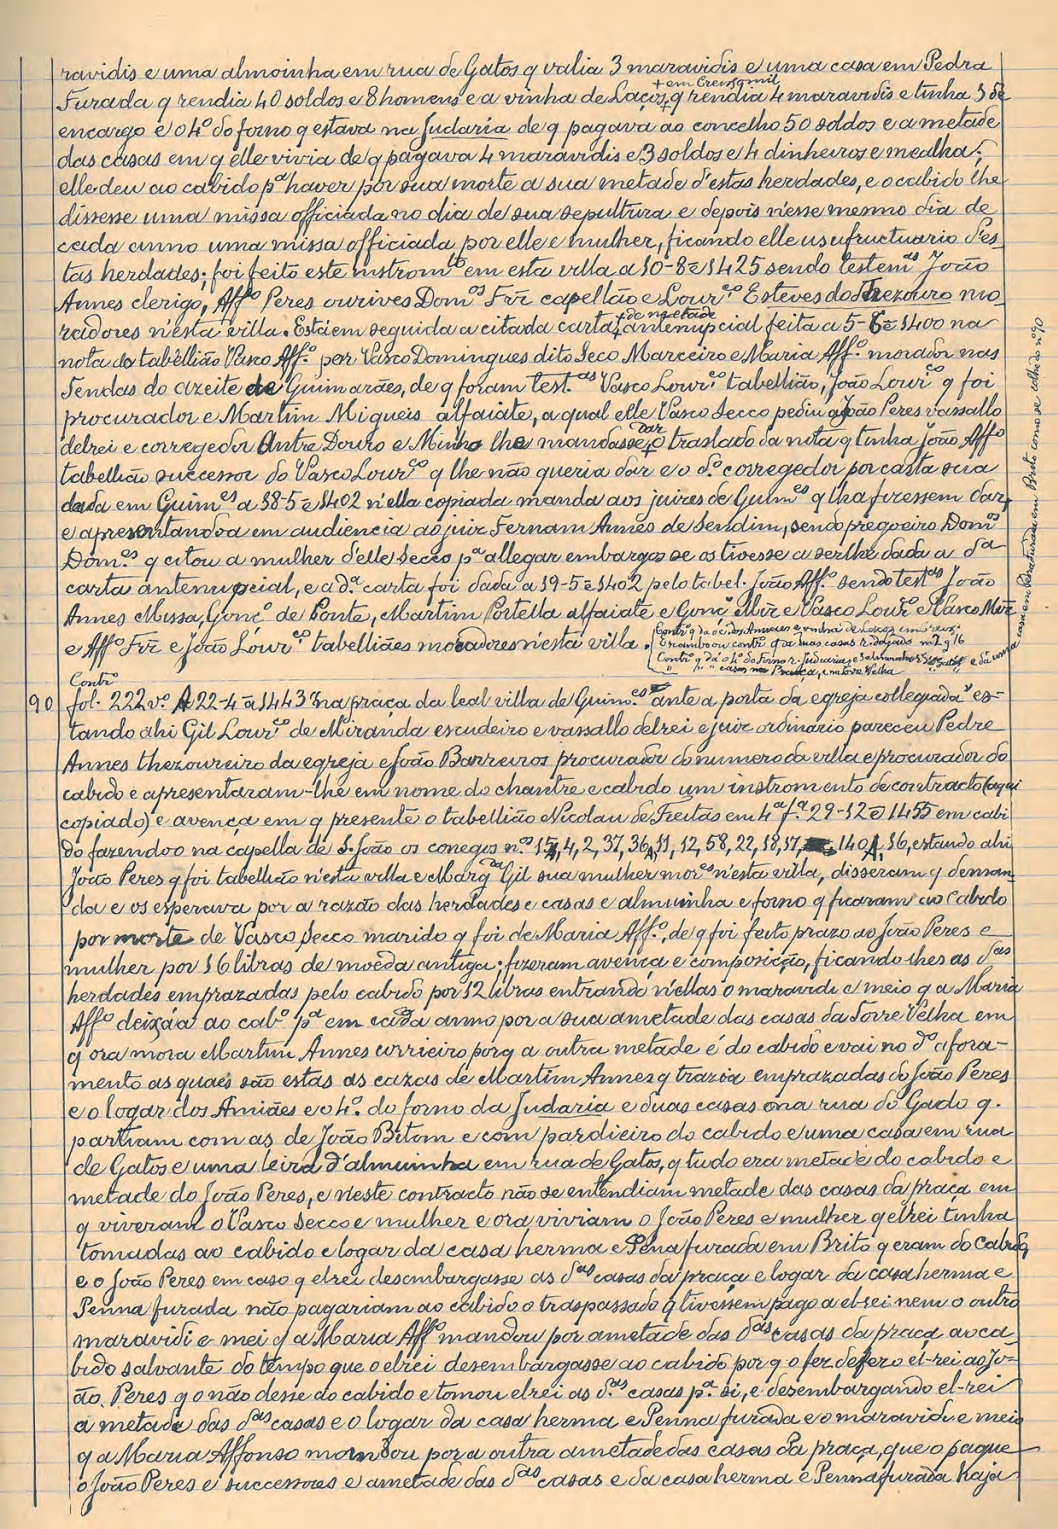 ravidis e uma almoinha em rua de Gatos q valia 3 maravidis e uma casa em Pedra
+ em Creixomil
Furada q rendia 40 soldos e 8 homens e a vinha de Laços + q rendia 4 maravidis e tinha 3 de
encargo e o 4º do forno q estava na Judaria de q pagava ao concelho 50 soldos e a metade
das casas em q elle vivia de q pagava 4 maravidis e 3 soldos e 4 dinheiros e mealha;
elle deu ao cabido pª haver por sua morte a sua metade d'estas herdades, e o cabido lhe
dissesse uma missa officiada no dia de sua sepultura e depois n'esse mesmo dia de
cada anno uma missa officiada por elle e mulher, ficando elle usufructuario d'es
tas herdades; foi feito este instromto em esta villa a 10-8-ē 1425 sendo testemas João
Annes clerigo, Affº Peres ourives Domos Frz capellão e Lourço Esteves do Thezouro mo
+ de metade
radores n'esta villa. Está em seguida a citada carta + antenupcial feita a 5-6-ē 1400 na
nota do tabellião Vasco Affº por Vasco Domingues dito Seco Marceiro e Maria Affº morador nas
Tendas do azeite de Guimarães, de q foram testas Vasco Lourço tabellião, João Lourço q foi
procurador e Martim Migueis alfaiate, a qual elle Vasco Secco pediu a João Peres vassallo
delrei e corregedor Antre Douro e Minho lhe mandasse dar o traslado da nota q tinha João Affº
tabellião successor do Vasco Lourço q lhe não queria dar e o dº corregedor por carta sua
dada em Guimes a 18-5-ē 1402 n'ella copiada manda aos juizes de Guimes q lha fizessem dar,
e apresentando-a em audiencia ao juiz Fernam Annes de Sendim, sendo pregoeiro Domos
Domes q citou a mulher d'elle Secco pª allegar embargos se os tivesse a ser lhe dada a dª
carta antenupcial, e a dª carta foi dada a 19-5-ē 1402 pelo tabel. João Affº sendo testas João
Annes Missa, Gonçº de Ponte, Martim Portella alfaiate e Gonçº Mir e Vasco Lourço e Vasco Mir
e Affº Frz e João Lourço tabelliães moradores n'esta villa.
Contrº q dá o c. dos Amiaes e vinha de Laços em
Escambo ou contrº q as suas casas
Contrº q dá o 4º do Forno r. Judiaria, e almoinha r. Gatos e da uma
casas na Praça, e na torre Velha
casa em Pedrafurada em Brito como se colhe do nº 90
Contrº
90 fol. 222 vº A 22-4-ē 1443 na praça da leal villa de Guimes ante a porta da egreja collegiada es-
tando ahi Gil Lourço de Miranda escudeiro e vassallo delrei e juiz ordinario pareceu Pedre
Annes thezoureiro da egreja e João Barreiros procurador do numero da villa e procurador do
cabido e apresentaram-lhe em nome do chantre e cabido um instromento de contracto (aqui
copiado) e avença em q presente o tabellião Nicolau de Freitas em 4ª fª 29-12-ē 1455 em cabi
do fazendo-o na capella de S. João os conegos nos 15, 4, 2, 37, 36, 11, 12, 58, 22, 18, 17, 140, 16, estando ahi
João Peres q foi tabellião n'esta villa e Margda Gil sua mulher mores n'esta villa, disseram q deman
da e os esperava por a razão das herdades e casas e almuinha e forno q ficaram ao cabido
por morte de Vasco Secco marido q foi de Maria Affº, de q foi feito prazo ao João Peres e
mulher por 16 libras de moeda antiga; fizeram avença e composição, ficando lhes as das
herdades emprazadas pelo cabido por 12 libras entrando n'ellas o maravidi e meio q a Maria
Affº deixára ao cabº pª em cada anno por a sua ametade das casas da Torre Velha em
q ora mora Martim Annes corrieiro porq a outra metade é do cabido e vai no dº afora-
mento as quaes são estas as cazas de Martim Annes q trazia emprazadas do João Peres
e o logar dos Amiães e o 4º do forno da Judaria e duas casas na rua do Gado q
partiam com as de João Bitom e com pardieiro do cabido e uma casa em rua
de Gatos e uma leira d'almuinha em rua de Gatos, q tudo era metade do cabido e
metade do João Peres, e n'este contracto não se entendiam metade das casas da praça em
q viveram o Vasco Secco e mulher e ora viviam o João Peres e mulher q elrei tinha
tomadas ao cabido e logar da casa herma e Pena furada em Brito q eram do cabido,
e o João Peres em caso q elrei desembargasse as das casas da praça e logar da casa herma e
Penna furada não pagariam ao cabido o traspassado q tivessem pago a el-rei nem o outro
maravidi e mei q a Maria Affº mandou por ametade das das casas da praça ao ca
bido salvante do tempo que o elrei desembargasse ao cabido por q o fez defezo el-rei ao Jo-
ão Peres q o não desse do cabido e tomou elrei as das casas pª si, e desembargando el-rei
a metade das das casas e o logar da casa herma e Penna furada e o maravidi e meio
q a Maria Affonso mandou por a outra ametade das casas da praça, que o pague
o João Peres e successores e ametade das das casas e da casa herma e Penna furada haja